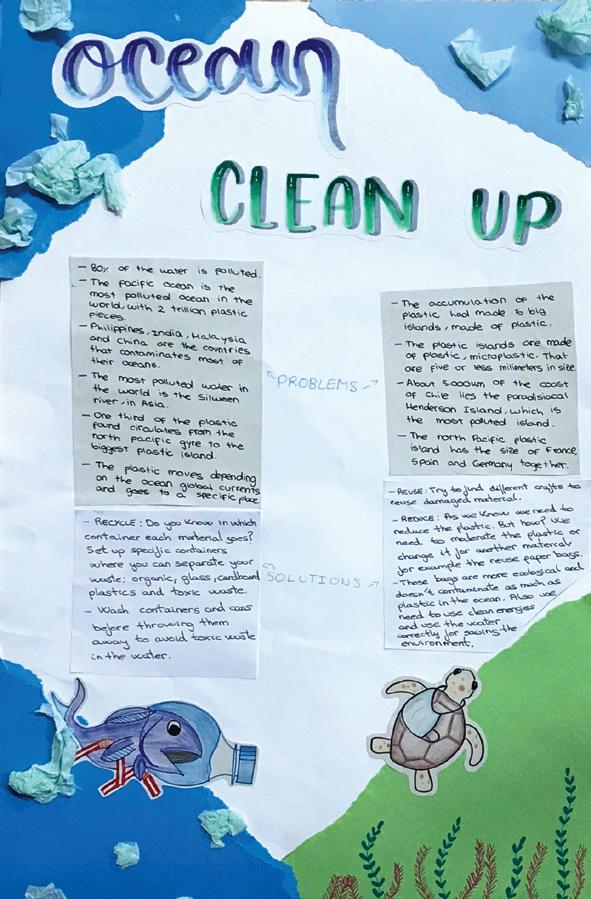 ocean
CLEAN UP
- 80% of the water is polluted.
- The pacific ocean is the
most polluted ocean in the
world, with 2 trillion plastic
pieces.
- Philippines, India, Malaysia
and China are the countries
that contaminates most of
their oceans.
- The most polluted water in
the world is the Silween
river, in Asia.
- One third of the plastic
found circulates from the
north pacific gyre to the
biggest plastic island.
- The plastic moves depending
on the ocean global currents
and goes to a specific place
PROBLEMS
- The accumulation of the
plastic had made 5 big
islands, made of plastic.
- The plastic islands are made
of plastic, microplastic. That
are five or less milimeters in size.
- About 5.000km of the coast
of Chile lies the paradisiacal
Henderson Island, which is
the most polluted island.
- The north Pacific plastic
island has the size of France,
Spain and Germany together.
- RECYCLE: Do you know in which
container each material goes?
Set up specific containers
where you can separate your
waste: organic, glass, cardboard
plastics and toxic waste.
- Wash containers and cans
before throwing them
away to avoid toxic waste
in the water.
SOLUTIONS
- REUSE: Try to find different crafts to
reuse damaged material.
- REDUCE: As we know we need to
reduce the plastic. But how? We
need to moderate the plastic or
change it for another material
for example the reuse paper bags.
- These bags are more ecological and
doesn't contaminate as much as
plastic in the ocean. Also we
need to use clean energies
and use the water
correctly for saving the
environment.